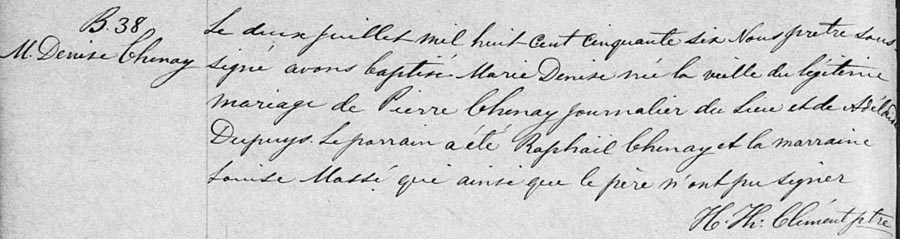 B. 38
M. Denise Chenay
Le deux juillet mil huit-cent cinquante six Nous prêtre sous-
signé avons baptisé Marie Denise née la veille du légitime
mariage de Pierre Chenay journalier du lieu et de Adélaïde
Dupuys. Le parrain a été Raphaël Chenay et la marraine
Louise Massé qui ainsi que le père n'ont pu signer
H. Th: Clément ptre